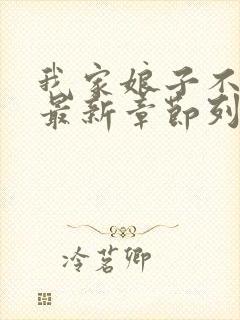 我家娘子不
最新章节列
冷茗卿